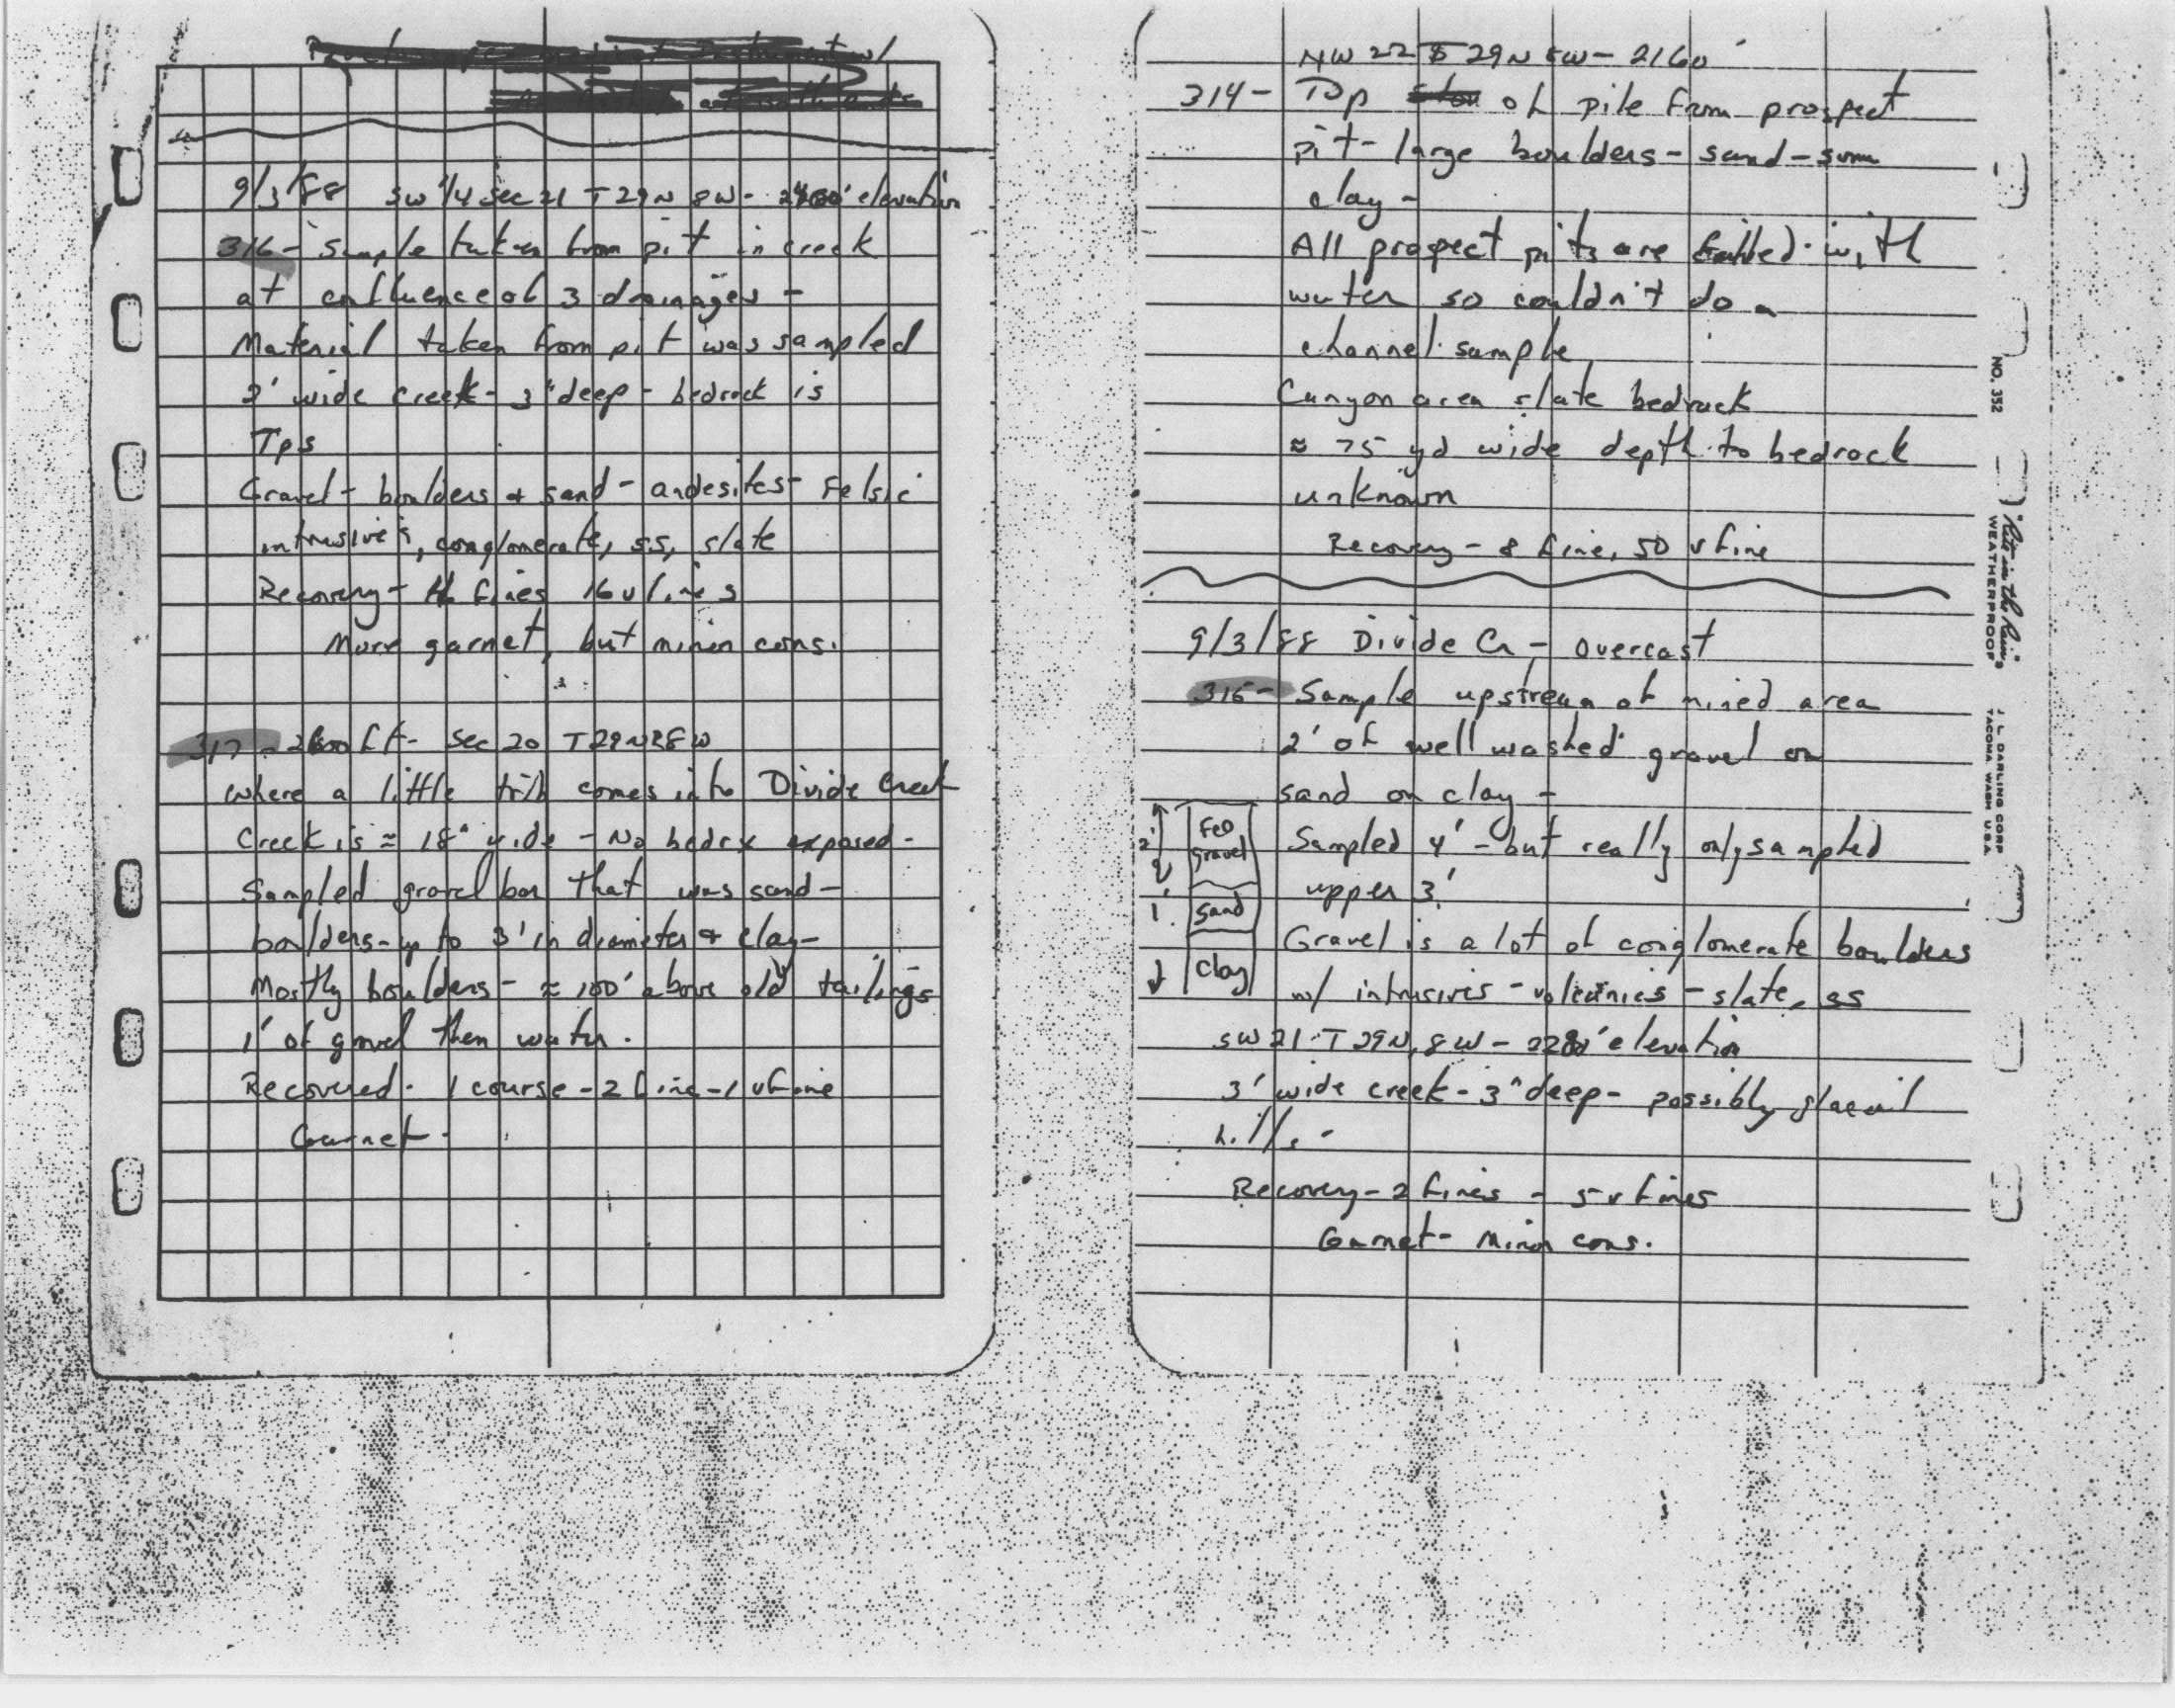 9/3/88 SW 1/4 Sec 21 T 29N 8W - elevation
316 - Sample taken from pit in creek
at confluence of 3 drainages -
Material taken from pit was sampled
2' wide creek - 3" deep - bedrock is
Tps
Gravel - boulders + sand - andesites - Felsic
intrusives, conglomerate, ss, slate
Recovery - fines 16 v fines
More garnet, but minor cons.
317 - ft - Sec 20 T29N R8W
where a little trib comes into Divide Creek
Creek is ≈ 18" wide - No bedrx exposed -
Sampled gravel bar that was sand -
boulders - up to 3' in diameter + clay -
Mostly boulders - ≈ 100' above old tailings
1' of gravel then water.
Recovered - 1 course - 2 fine - 1 v fine
Garnet -
NW 22 T 29N 8W - 2160'
314 - Top of pile from prospect
pit - large boulders - sand - some
clay -
All prospect pits are filled with
water so couldn't do a
channel sample
Canyon area slate bedrock
≈ 75 yd wide depth to bedrock
unknown
Recovery - 8 fine, 50 v fine
9/3/88 Divide Cr - overcast
315 - Sample upstream of mined area
2' of well washed gravel on
sand on clay -
Sampled 4' - but really only sampled
upper 3'
Gravel is a lot of conglomerate boulders
w/ intrusives - volcanics - slate, ss
SW 21 T 29N, 8W - 2280' elevation
3' wide creek - 3" deep - possibly glacial
hills -
Recovery - 2 fines - 5 v fines
Garnet - Minor cons.
2'
FeO
gravel
1'
sand
clay
NO. 352
"Rite in the Rain"
WEATHERPROOF
J. L. DARLING CORP
TACOMA WASH U.S.A.